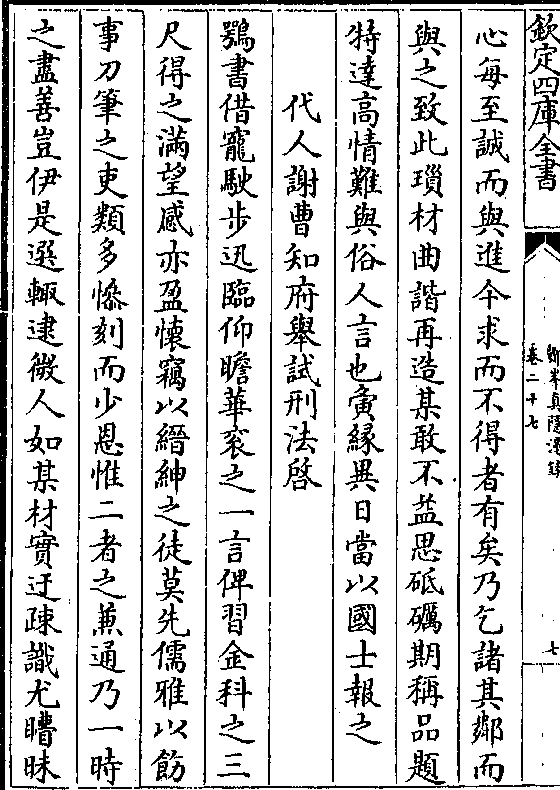 欽定四庫全書
卷二十七
七
心每至誠而與進今求而不得者有矣乃乞諸其鄰而
與之致此瑣材曲諧再造某敢不益思砥礪期稱品題
特達高情難與俗人言也寅緣異日當以國士報之
代人謝曹知府舉試刑法啓
鶚書借寵駛步迅臨仰瞻華衮之一言俾習金科之三
尺得之滿望感亦盈懷竊以縉紳之徒莫先儒雅以飭
事刀筆之吏類多慘刻而少恩惟二者之兼通乃一時
之盡善豈伊是選輙逮微人如某材實迂疎識尤瞶昧